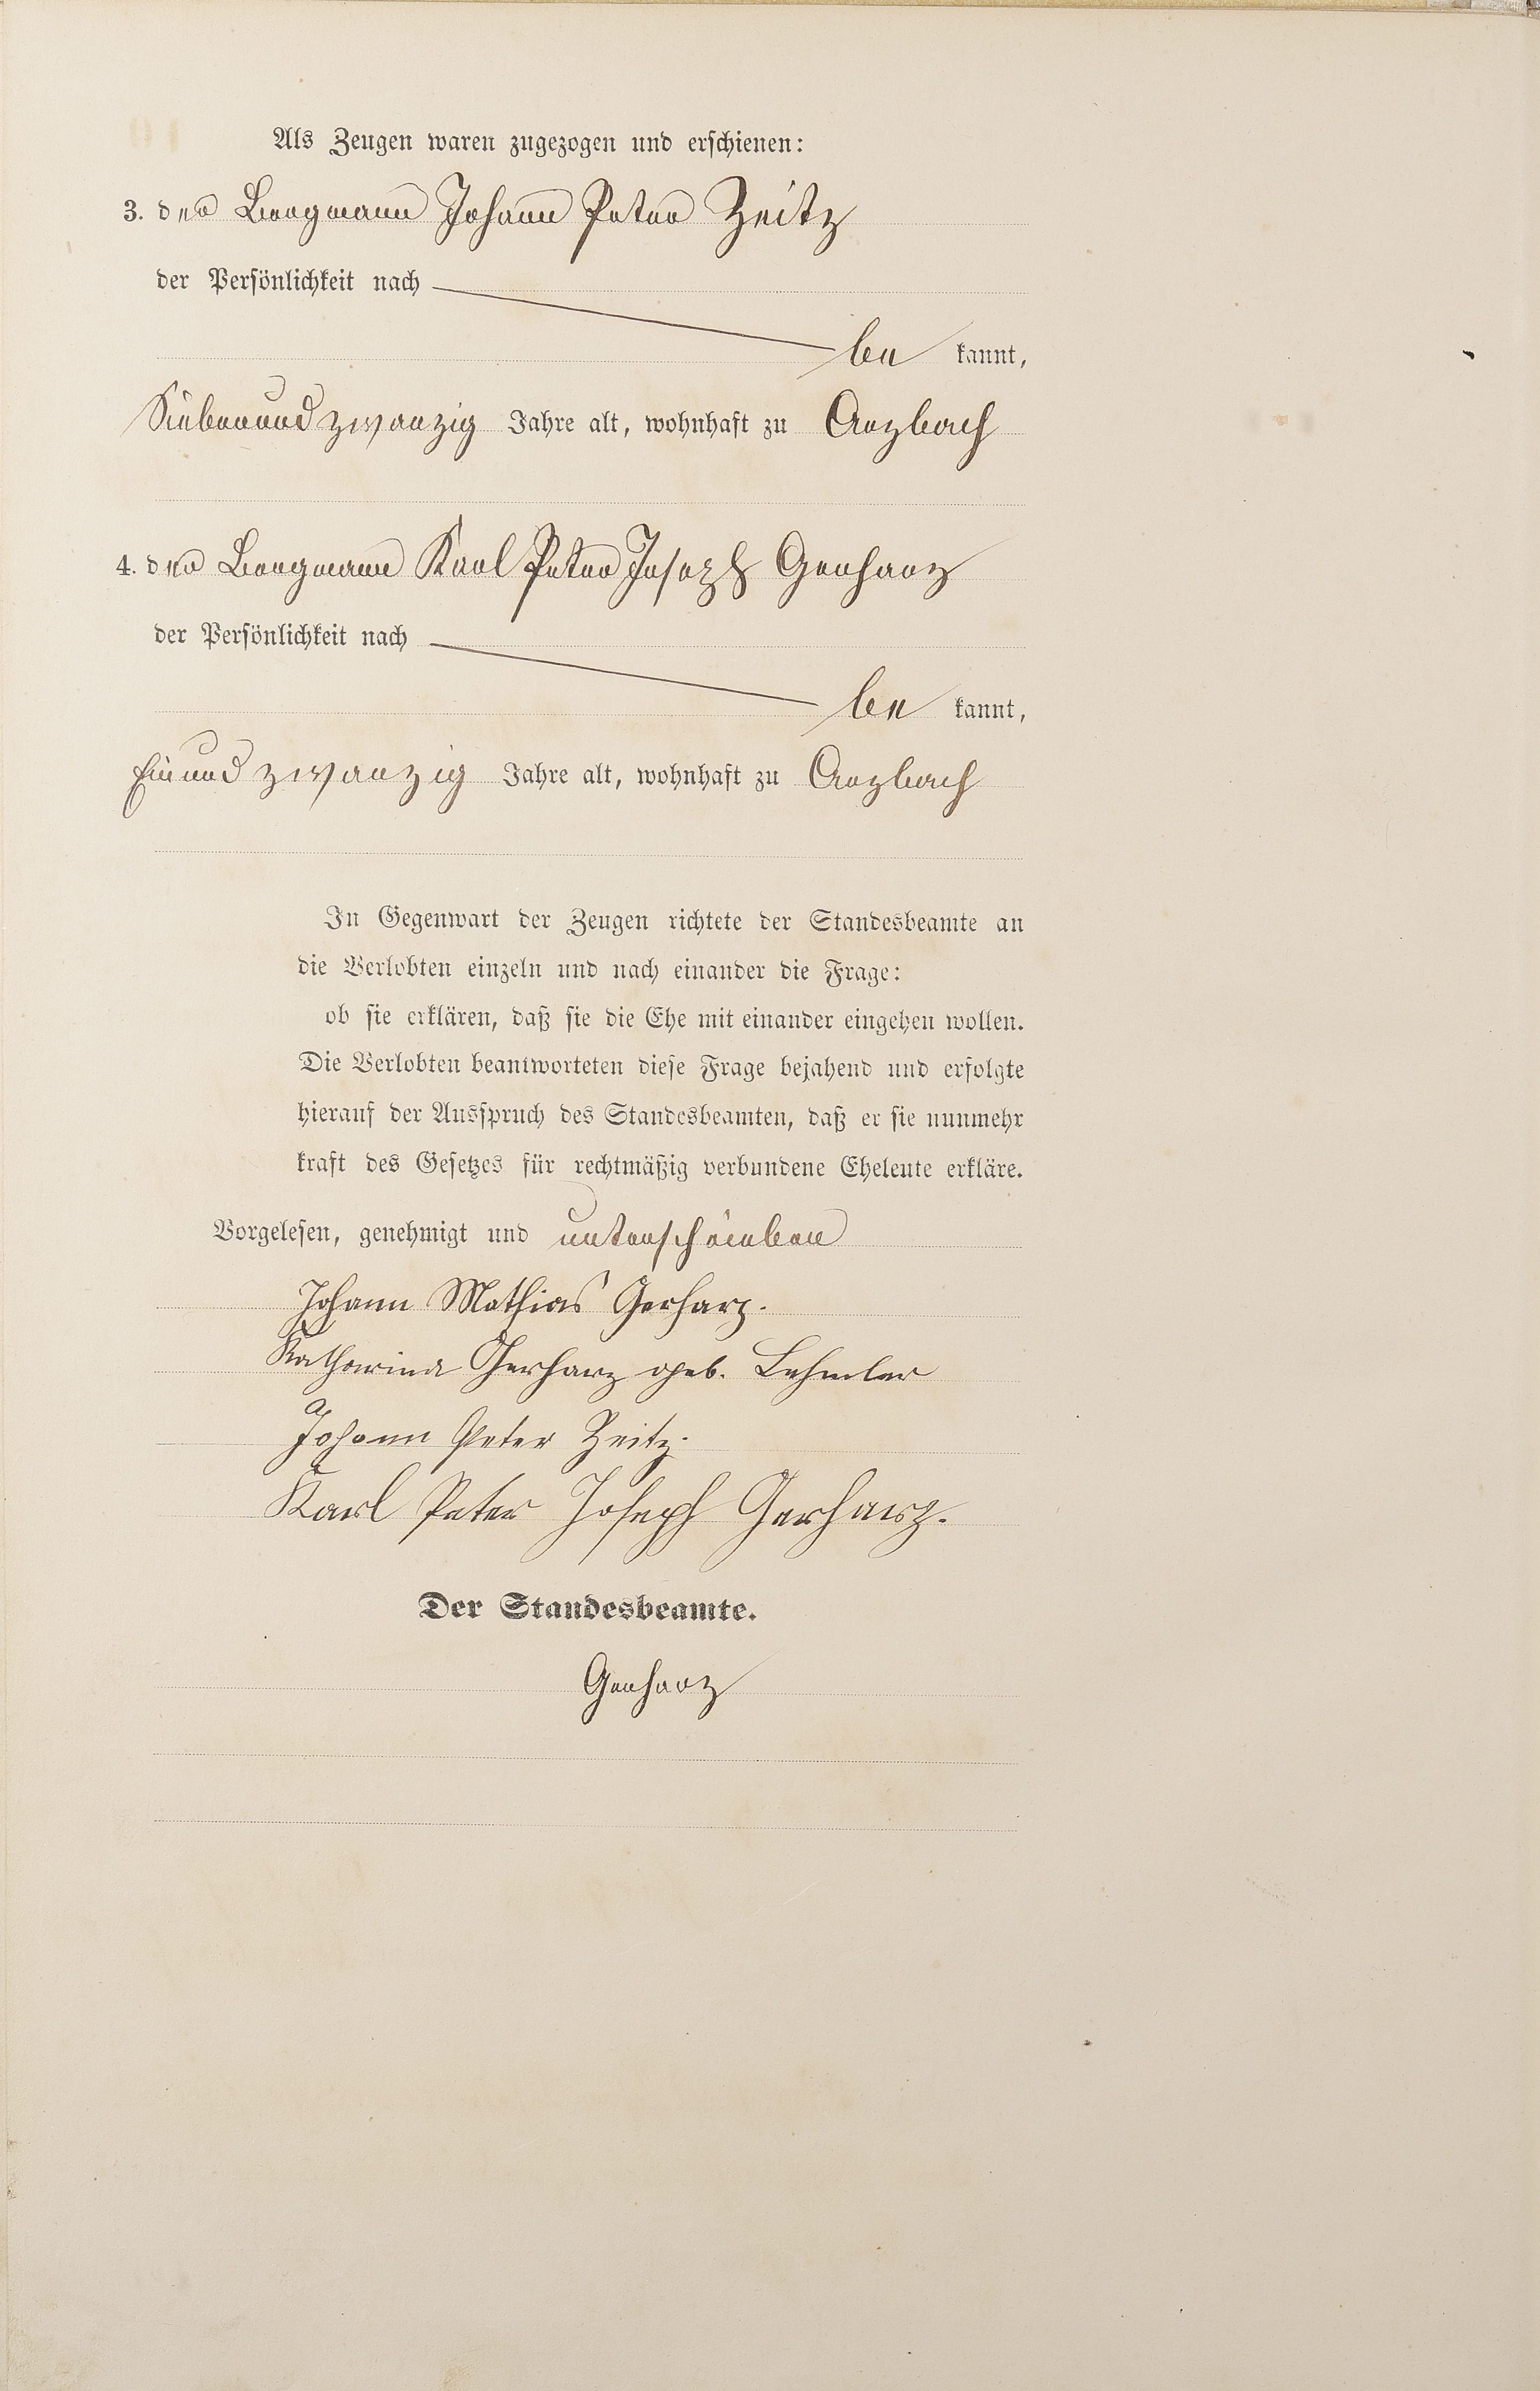 Als Zeugen waren zugezogen und erschienen:
3. der Bergmann Johann Peter Zeitz
der Persönlichkeit nach
be kannt,
Siebenundzwanzig Jahre alt, wohnhaft zu Arzbach
4. der Bergmann Karl Peter Joseph Gerharz
der Persönlichkeit nach
be kannt,
Einundzwanzig Jahre alt, wohnhaft zu Arzbach
In Gegenwart der Zeugen richtete der Standesbeamte an
die Verlobten einzeln und nach einander die Frage:
ob sie erklären, daß sie die Ehe mit einander eingehen wollen.
Die Verlobten beantworteten diese Frage bejahend und erfolgte
hierauf der Ausspruch des Standesbeamten, daß er sie nunmehr
kraft des Gesetzes für rechtmäßig verbundene Eheleute erkläre.
Vorgelesen, genehmigt und unterschrieben
Johann Mathias Gerharz.
Katharina Gerharz geb. Lehmler
Johann Peter Zeitz.
Karl Peter Joseph Gerharz.
Der Standesbeamte.
Gerharz